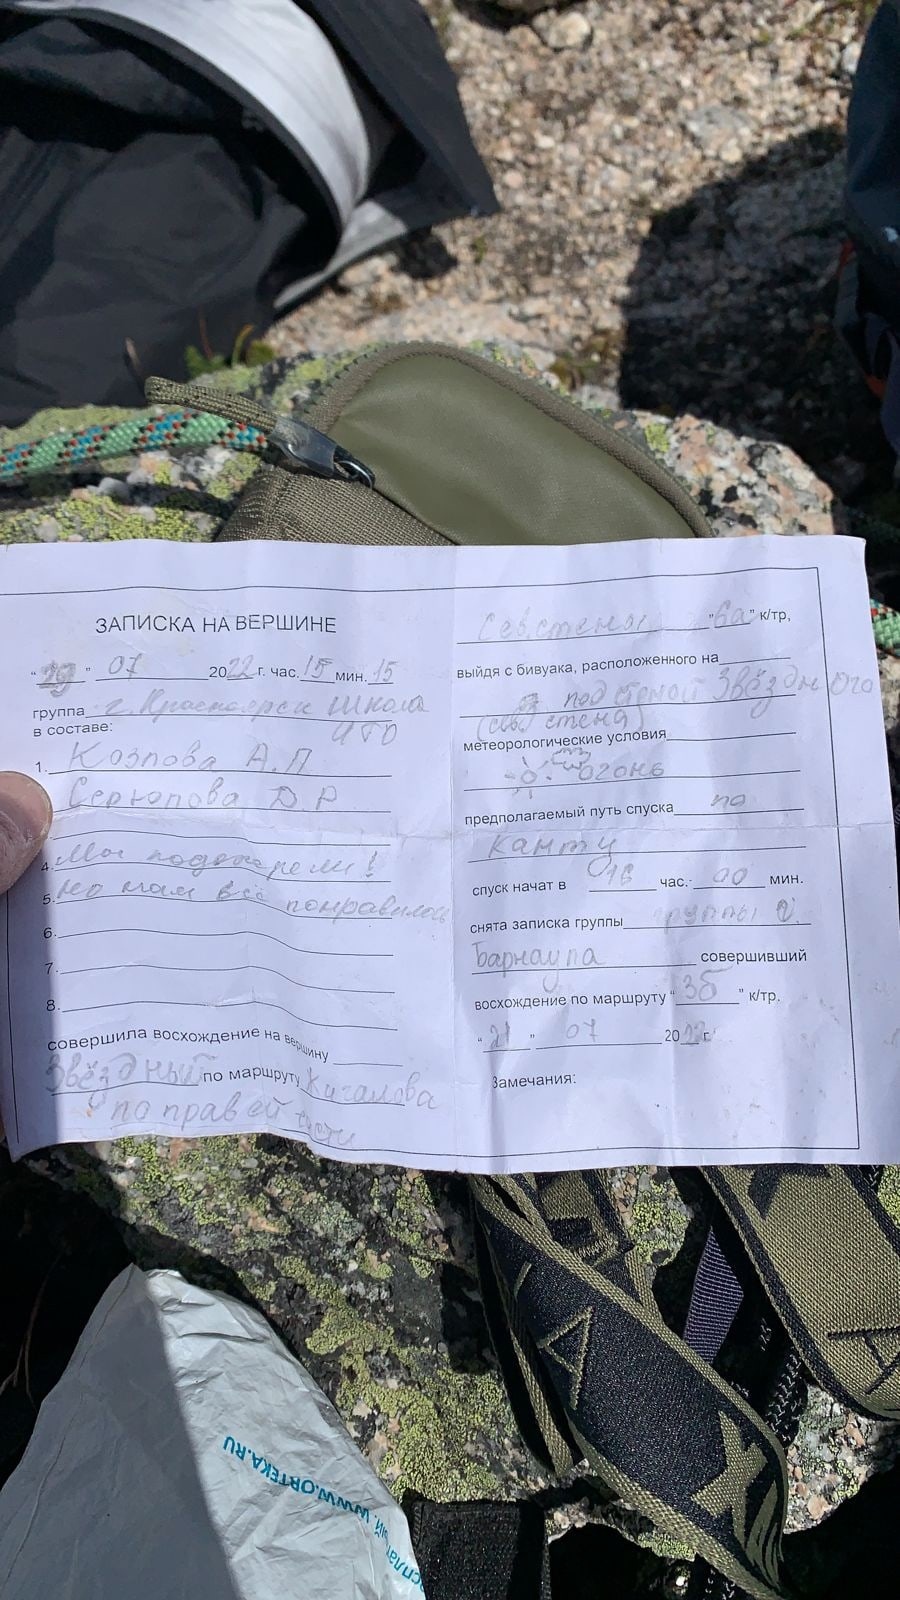 ЗАПИСКА НА ВЕРШИНЕ
"29" 07 2022г. час. 15 мин. 15
группа г. Красноярск Школа
в составе: ИТО
1. Козлова А.П
Серюпова Д Р
4. Мы подожрели!
5. но нам всё понравилось
6.
7.
8.
совершила восхождение на вершину
Звёздный по маршруту
по правой части
Сев.стены "6а" к/тр,
выйдя с бивуака, расположенного на
под стеной Звёздного
(сев стена)
метеорологические условия
огонь
предполагаемый путь спуска по
канту
спуск начат в 16 час. 00 мин.
снята записка группы группы
Барнаула совершивший
восхождение по маршруту "3б" к/тр.
"21" 07 2022г.
Замечания:
WWW.ORTEKA.RU